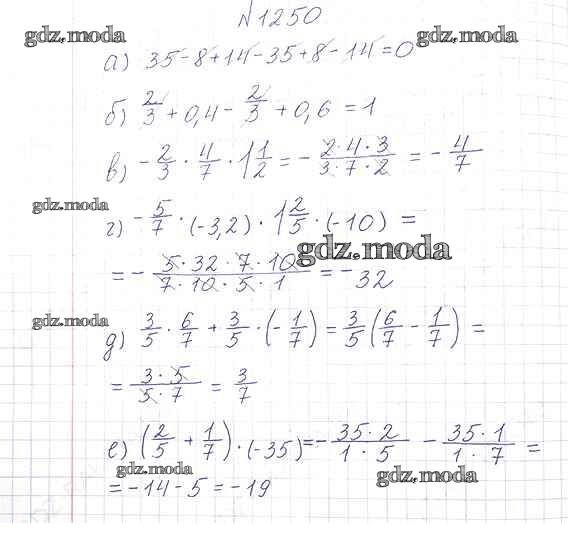 №1250
gdz.moda
gdz.moda
а) 35-8+14-35+8-14=0
б) 2/3 + 0,4 - 2/3 + 0,6 = 1
в) - 2/3 · 4/7 · 1 1/2 = - 2·4·3/3·7·2 = - 4/7
gdz.moda
г) - 5/7 · (-3,2) · 1 2/5 · (-10) =
gdz.moda
= - 5·32·7·10/7·10·5·1 = -32
gdz.moda
д) 3/5 · 6/7 + 3/5 · (- 1/7) = 3/5 (6/7 - 1/7) =
= 3·5/5·7 = 3/7
е) (2/5 + 1/7) · (-35) = - 35·2/1·5 - 35·1/1·7 =
gdz.moda
gdz.moda
= -14 - 5 = -19